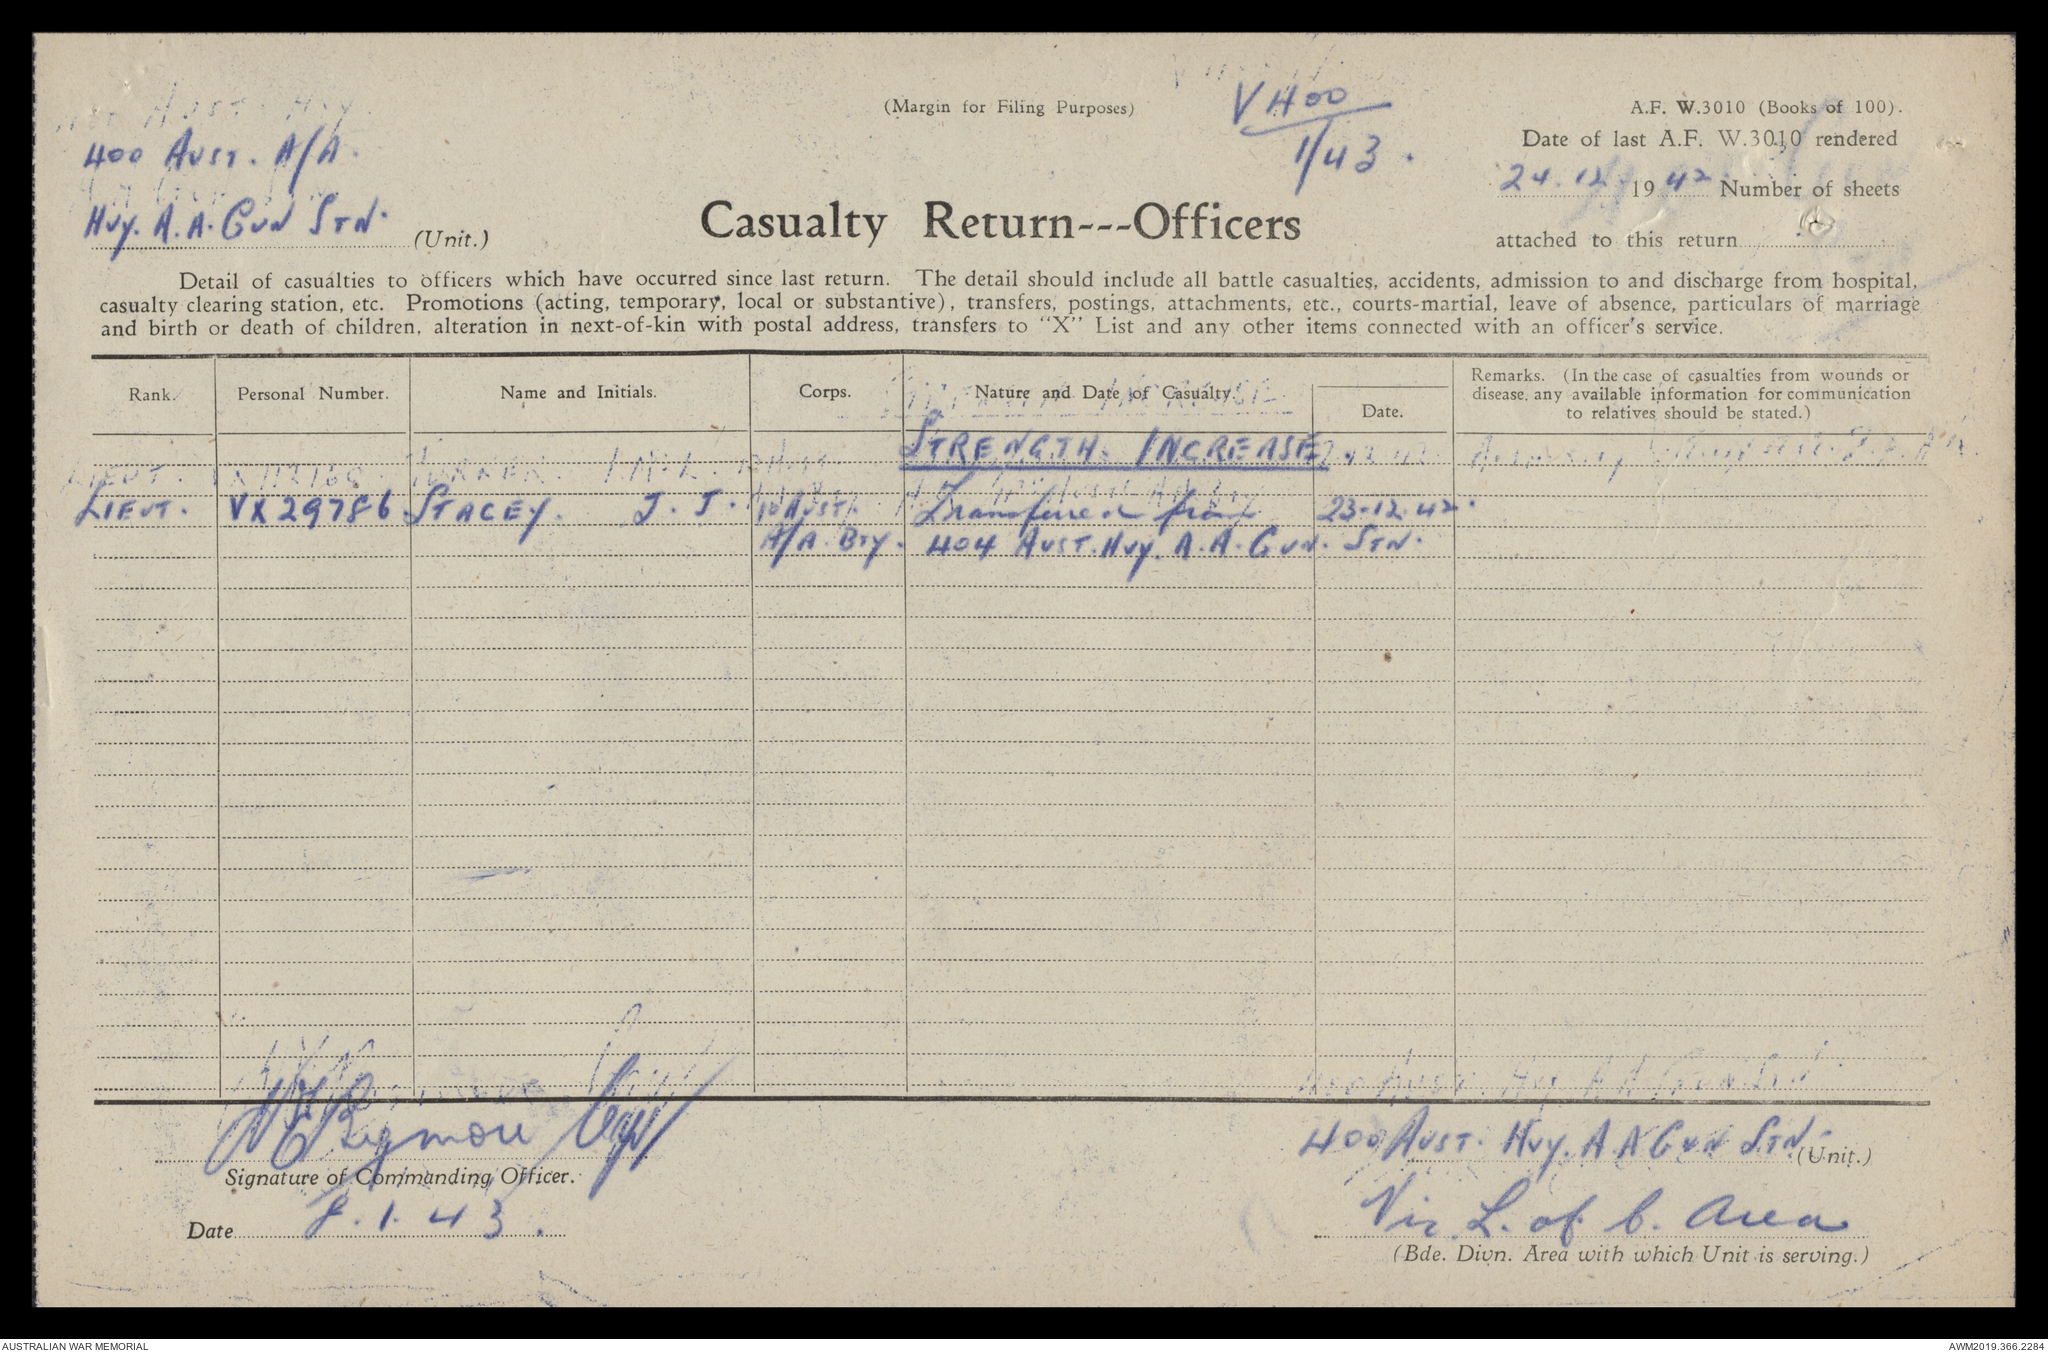 (Margin for Filing Purposes)
V400
1/43.
A.F. W.3010 (Books of 100).
400 AUST. A/A.
Date of last A.F. W.3010 rendered
24.12 1942 Number of sheets
HVY. A.A. GUN STN. (Unit.)
Casualty Return---Officers
attached to this return
Detail of casualties to officers which have occurred since last return. The detail should include all battle casualties, accidents, admission to and discharge from hospital,
casualty clearing station, etc. Promotions (acting, temporary, local or substantive), transfers, postings, attachments, etc., courts-martial, leave of absence, particulars of marriage
and birth or death of children, alteration in next-of-kin with postal address, transfers to "X" List and any other items connected with an officer's service.
Rank. Personal Number. Name and Initials. Corps. Nature and Date of Casualty Date. Remarks. (In the case of casualties from wounds or
disease, any available information for communication
to relatives should be stated.)
STRENGTH. INCREASE
LIEUT. VX29786. STACEY. J. J. 10 AUST. Transferred from 23-12.42.
A/A. BTY. 404 AUST. HVY. A.A. GUN. STN.
Capt
Signature of Commanding Officer.
Date 8.1.43.
400 AUST. HVY. A A GUN STN. (Unit.)
Vic L. of C. Area
(Bde. Divn. Area with which Unit is serving.)
AUSTRALIAN WAR MEMORIAL
AWM2019.366.2284